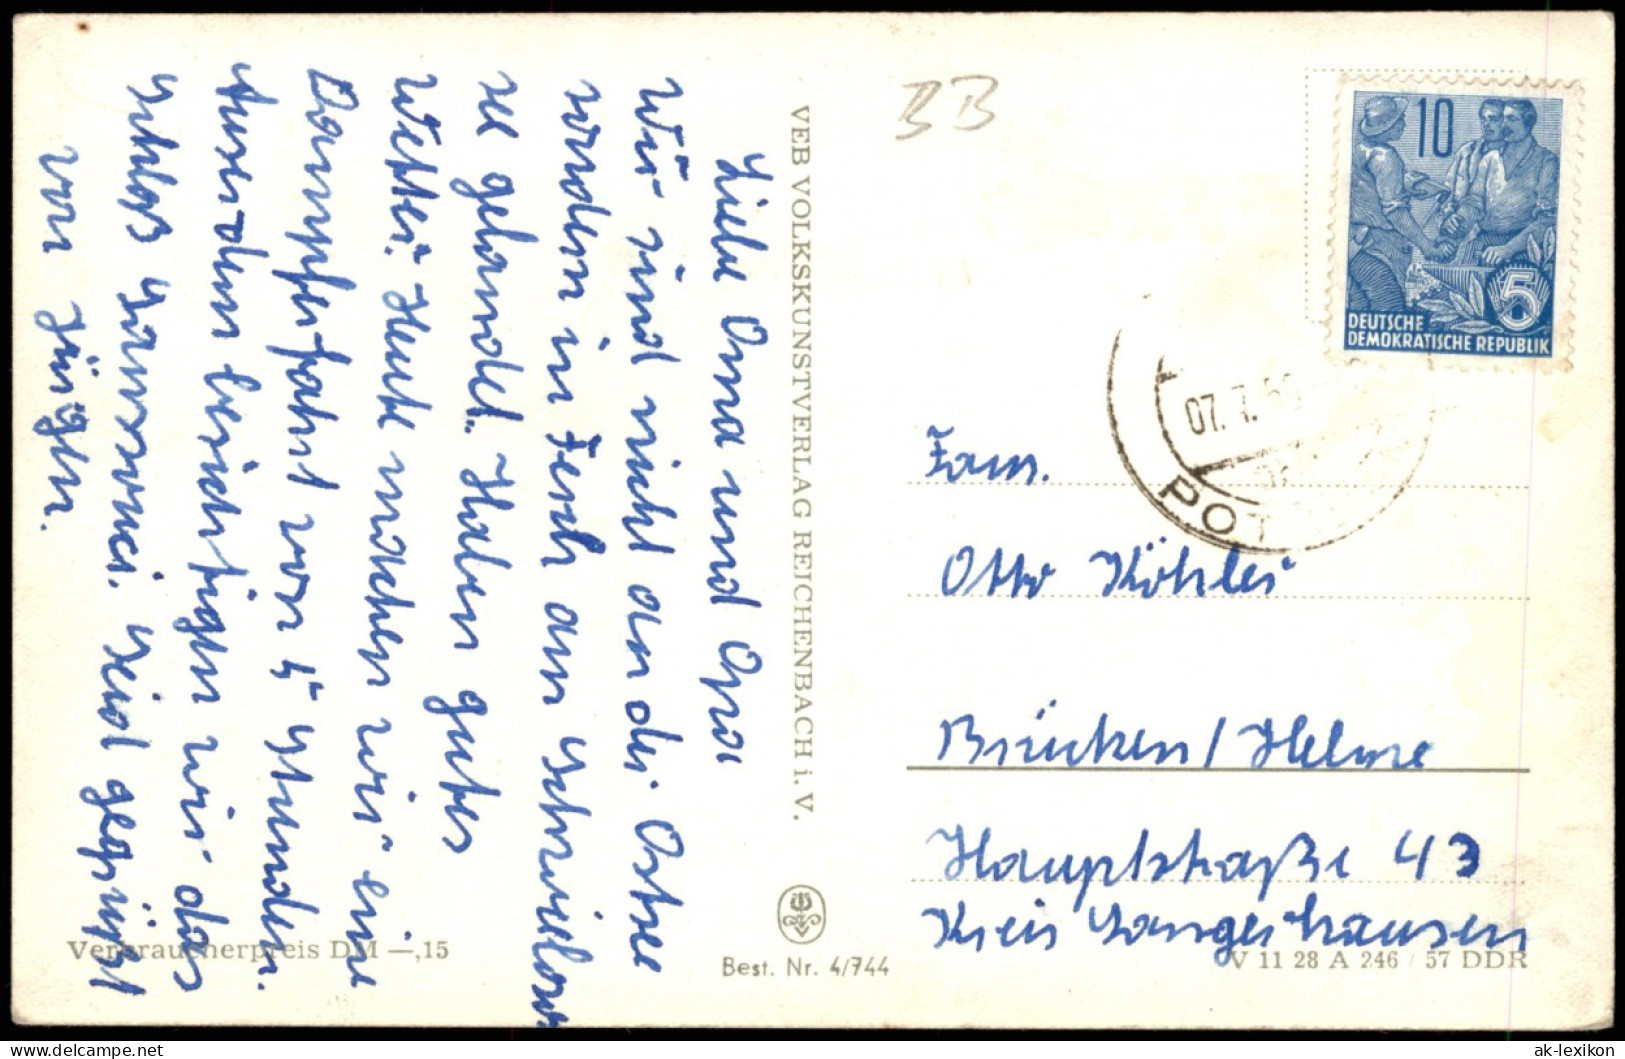 Liebe Oma und Opa
Wir sind nicht an der Ostsee
sondern in Ferch am Schwielow
see gelandet. Haben gutes
Wetter. Heute machen wir eine
Dampferfahrt von 5 Stunden.
Ausserdem besichtigen wir das
Schloß Sanssouci. Seid gegrüßt
von Jürgen.
VEB VOLKSKUNSTVERLAG REICHENBACH i. V.
Verbraucherpreis DM —,15
Best. Nr. 4/744
BB
10
5
DEUTSCHE
DEMOKRATISCHE REPUBLIK
07. 7.
POT
Fam.
Otto Köhler
Brücken/Helme
Hauptstraße 43
Kreis Sangerhausen
V 11 28 A 246 / 57 DDR
delcampe.net
ak-lexikon